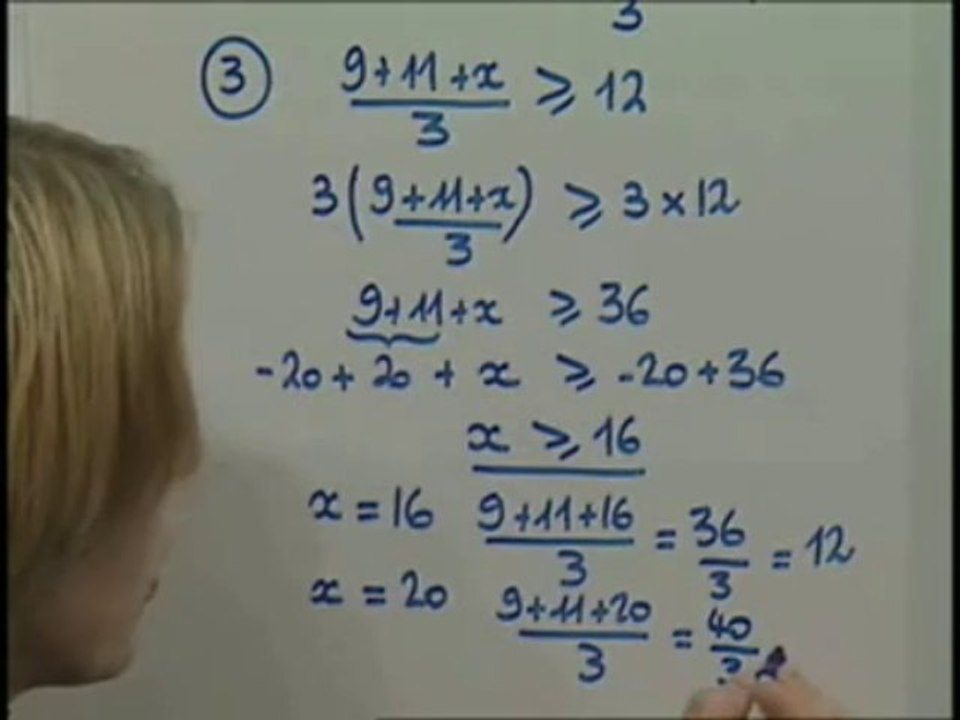 3
③ 9+11+x/3 ⩾ 12
3(9+11+x/3) ⩾ 3×12
9+11+x ⩾ 36
-20+20+x ⩾ -20+36
x ⩾ 16
x=16 9+11+16/3 = 36/3 = 12
x=20 9+11+20/3 = 40/3